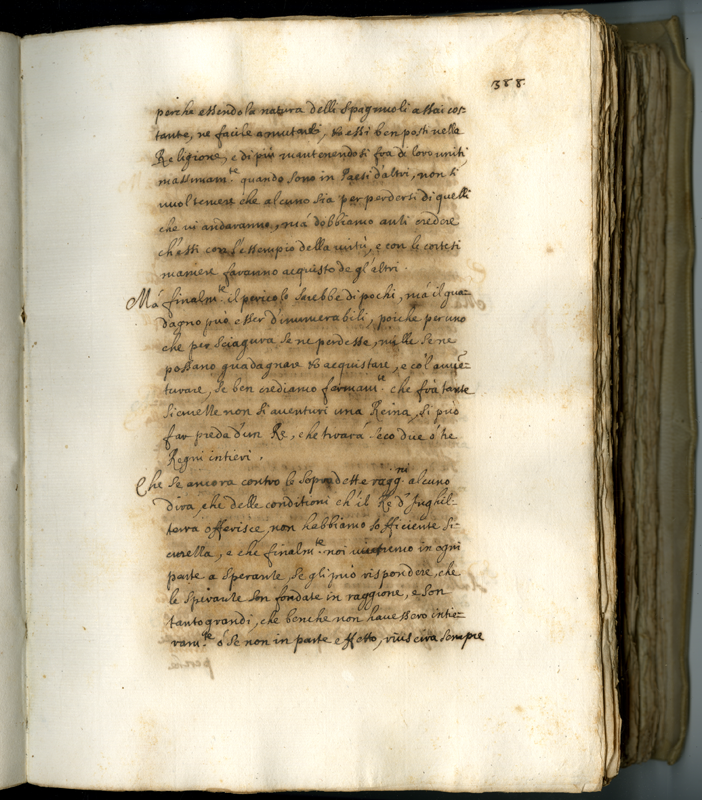 388
perche essendo la natura delli Spagnuoli assai cos-
tante, ne facile a mutarsi, et essi ben posti nella
Religione, e di più mantenendosi fra di loro uniti
massimam.te quando sono in Paesi d'altri, non si
vuol temer che alcuno sia per perdersi di quelli
che vi andaranno, mà dobbiamo anti credere
ch'essi con l'essempio della virtù, e con le cortesi
maniere faranno acquisto de gl'altri.
Mà finalm.te il pericolo sarebbe di pochi, mà il gua-
dagno può esser d'innumerabili, poiche per uno
che per sciagura se ne perdesse, mille se ne
possano guadagnare et acquistare, e co'l auuē-
turare, se ben crediamo fermam.te che frà tante
Siamelle non si auenturi una Reina, si può
far preda d'un Re, che tirarà seco due o tre
Regni intieri.
Che se ancora contro le sopradette ragg.ni alcuno
dirà, che delle conditioni ch'il Re d'Inghil-
terra offerisce, non habbiamo sofficiente si-
curella, e che finalm.te noi in ogni
parte a sperante, se gli può rispondere, che
le sperante son fondate in raggione, e son
tanto grandi, che benche non hauessero intie-
ram.te ò se non in parte effetto, riuscirà sempre